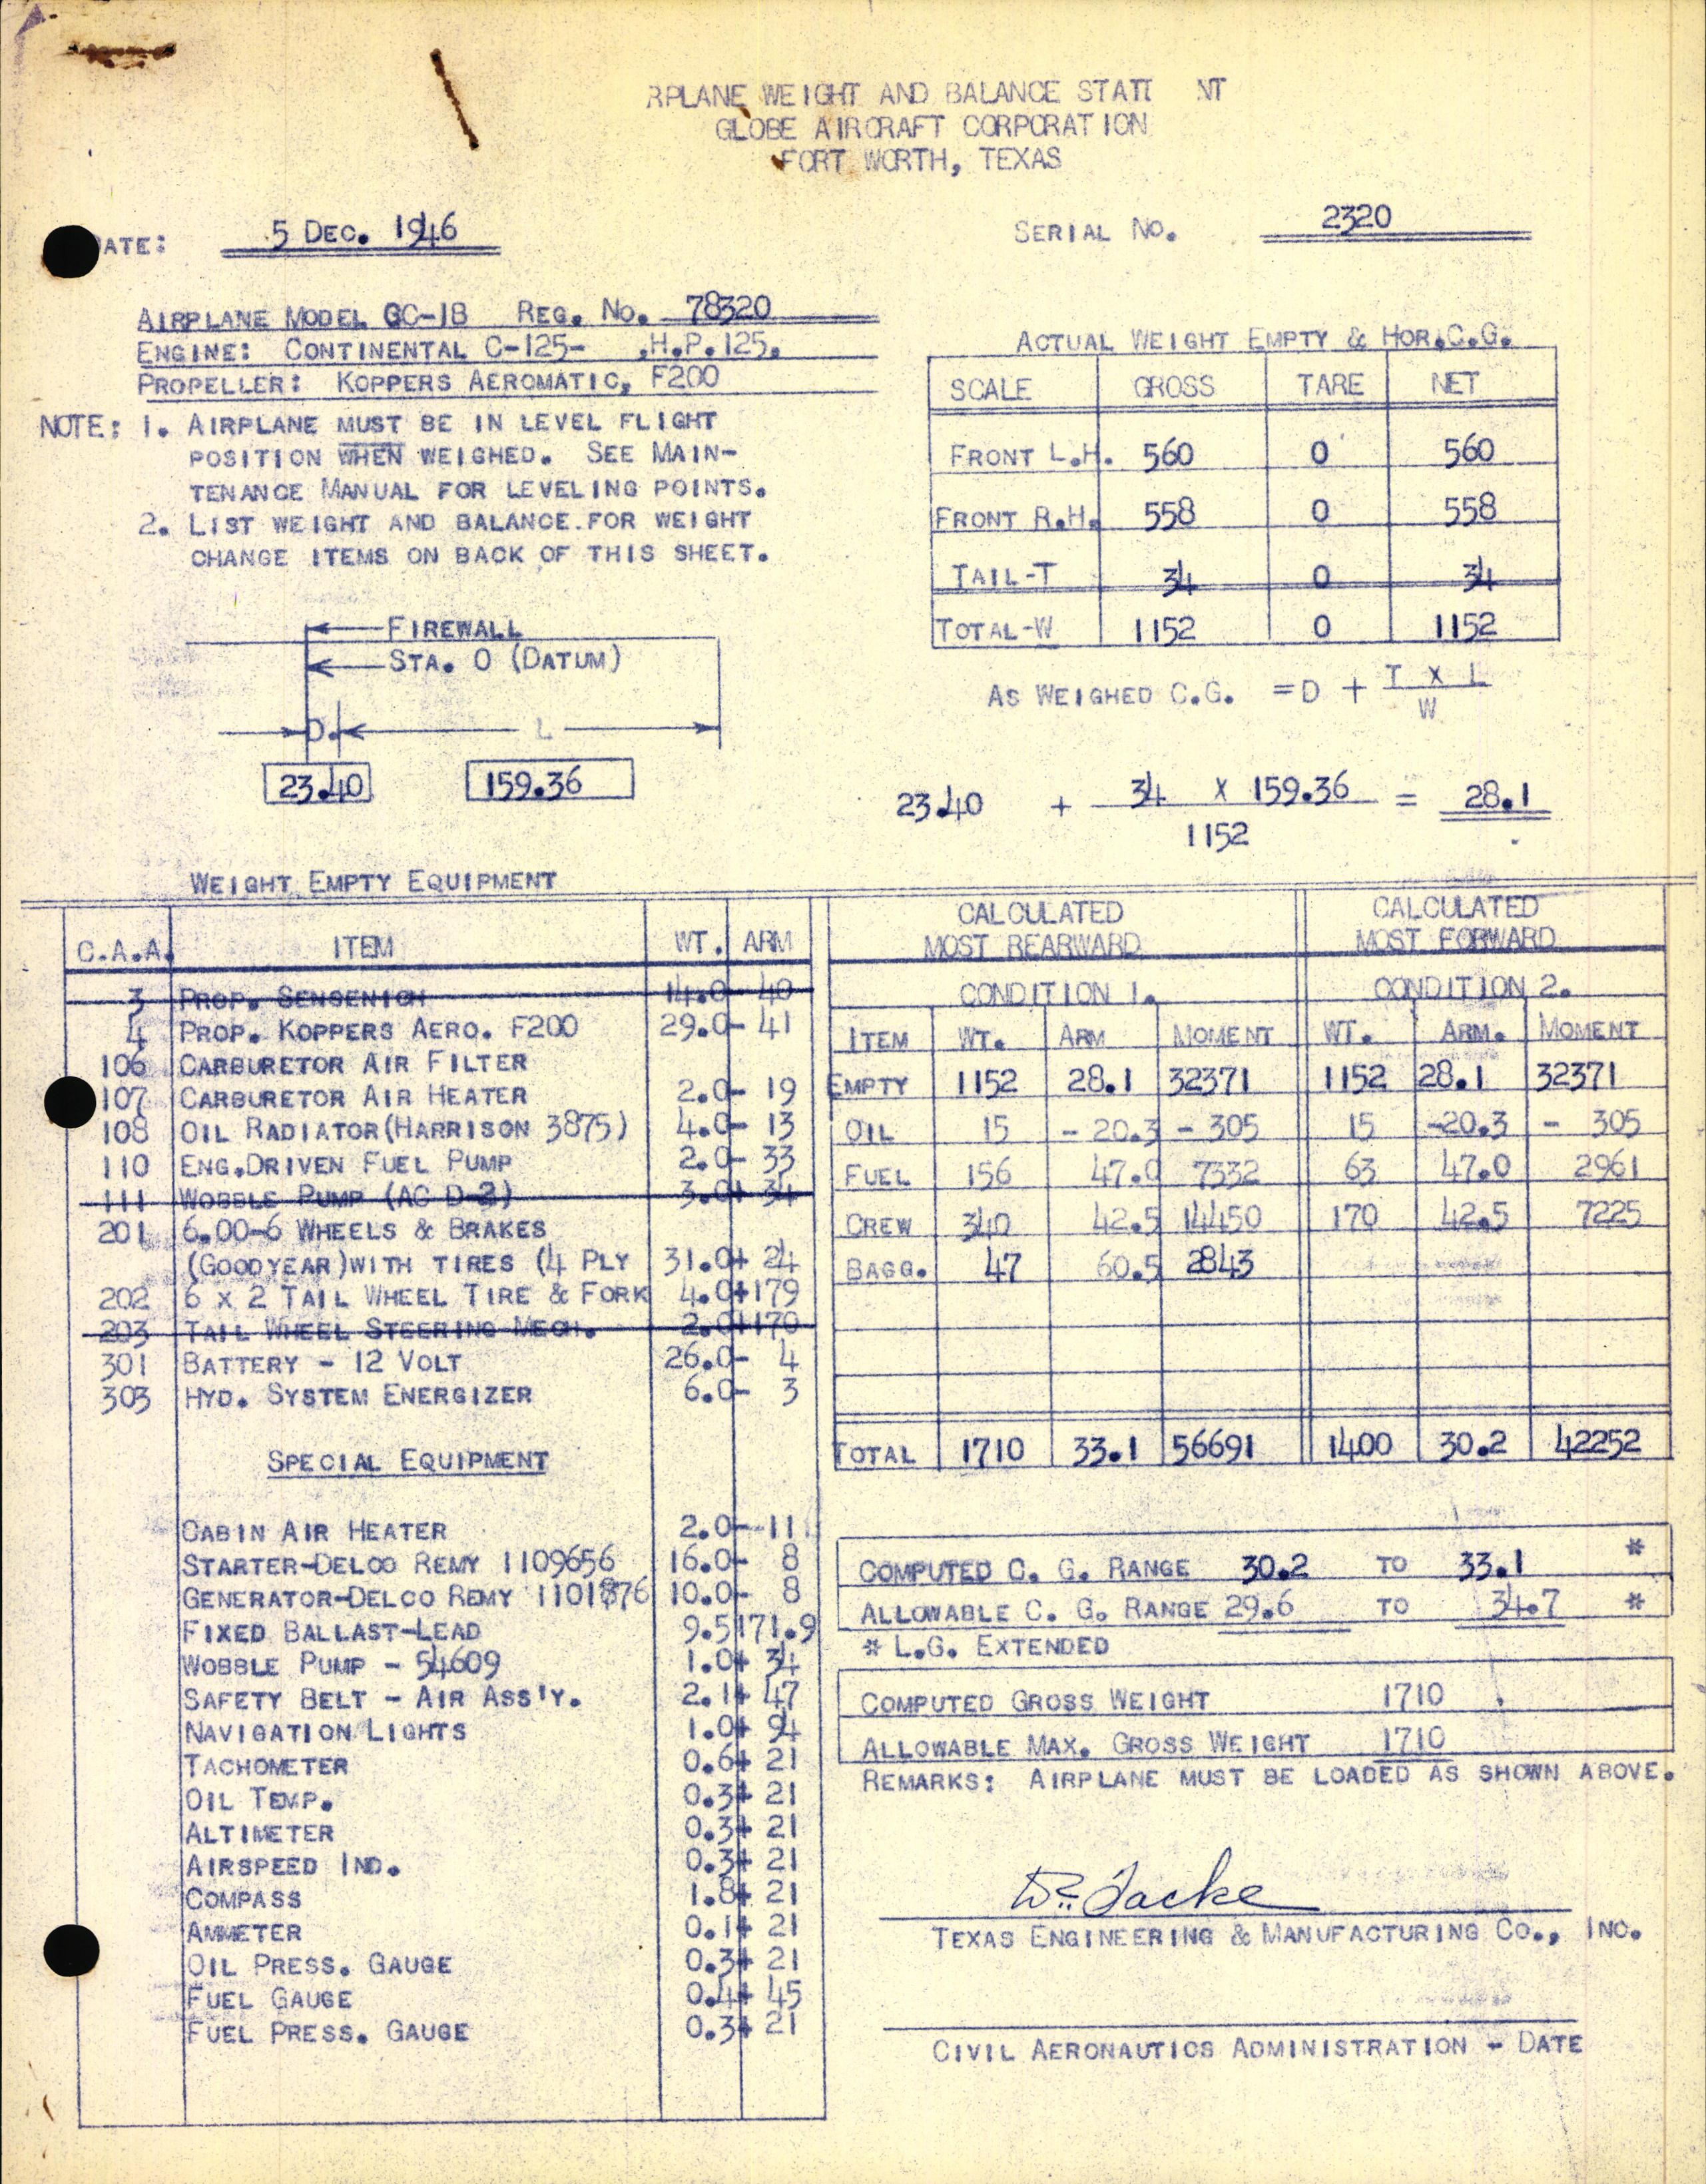 RPLANE WEIGHT AND BALANCE STATE NT
GLOBE AIRCRAFT CORPORATION
FORT WORTH, TEXAS
ATE: 5 DEC. 1946
SERIAL NO. 2320
AIRPLANE MODEL GC-1B REG. NO. 78320
ENGINE: CONTINENTAL C-125- .H.P.125.
PROPELLER: KOPPERS AEROMATIC, F200
NOTE: 1. AIRPLANE MUST BE IN LEVEL FLIGHT
POSITION WHEN WEIGHED. SEE MAIN-
TENANCE MANUAL FOR LEVELING POINTS.
2. LIST WEIGHT AND BALANCE.FOR WEIGHT
CHANGE ITEMS ON BACK OF THIS SHEET.
ACTUAL WEIGHT EMPTY & HOR.C.G.
SCALE GROSS TARE NET
FRONT L.H. 560 0 560
FRONT R.H. 558 0 558
TAIL-T 34 0 34
TOTAL-W 1152 0 1152
FIREWALL
STA. 0 (DATUM)
D. L
23.40 159.36
AS WEIGHED C.G. = D + T X L
W
23.40 + 34 X 159.36 = 28.1
1152
WEIGHT EMPTY EQUIPMENT
C.A.A. ITEM WT. ARM
3 PROP. SENSENICH 14.0- 40
4 PROP. KOPPERS AERO. F200 29.0- 41
106 CARBURETOR AIR FILTER
107 CARBURETOR AIR HEATER 2.0- 19
108 OIL RADIATOR(HARRISON 3875) 4.0- 13
110 ENG.DRIVEN FUEL PUMP 2.0- 33
111 WOBBLE PUMP (AC D-2) 3.0+ 34
201 6.00-6 WHEELS & BRAKES
(GOODYEAR)WITH TIRES (4 PLY 31.0+ 24
202 6 X 2 TAIL WHEEL TIRE & FORK 4.0+179
203 TAIL WHEEL STEERING MECH. 2.0+170
301 BATTERY - 12 VOLT 26.0- 4
303 HYD. SYSTEM ENERGIZER 6.0- 3
SPECIAL EQUIPMENT
CABIN AIR HEATER 2.0- 11
STARTER-DELCO REMY 1109656 16.0- 8
GENERATOR-DELCO REMY 1101876 10.0- 8
FIXED BALLAST-LEAD 9.5 171.9
WOBBLE PUMP - 54609 1.0+ 34
SAFETY BELT - AIR ASS'Y. 2.1+ 47
NAVIGATION LIGHTS 1.0+ 94
TACHOMETER 0.6+ 21
OIL TEMP. 0.3+ 21
ALTIMETER 0.3+ 21
AIRSPEED IND. 0.3+ 21
COMPASS 1.8+ 21
AMMETER 0.1+ 21
OIL PRESS. GAUGE 0.3+ 21
FUEL GAUGE 0.4+ 45
FUEL PRESS. GAUGE 0.3+ 21
CALCULATED CALCULATED
MOST REARWARD MOST FORWARD
CONDITION 1. CONDITION 2.
ITEM WT. ARM MOMENT WT. ARM. MOMENT
EMPTY 1152 28.1 32371 1152 28.1 32371
OIL 15 - 20.3 - 305 15 -20.3 - 305
FUEL 156 47.0 7332 63 47.0 2961
CREW 340 42.5 14450 170 42.5 7225
BAGG. 47 60.5 2843
TOTAL 1710 33.1 56691 1400 30.2 42252
COMPUTED C. G. RANGE 30.2 TO 33.1 *
ALLOWABLE C. G. RANGE 29.6 TO 34.7 *
* L.G. EXTENDED
COMPUTED GROSS WEIGHT 1710
ALLOWABLE MAX. GROSS WEIGHT 1710
REMARKS: AIRPLANE MUST BE LOADED AS SHOWN ABOVE.
TEXAS ENGINEERING & MANUFACTURING CO., INC.
CIVIL AERONAUTICS ADMINISTRATION - DATE